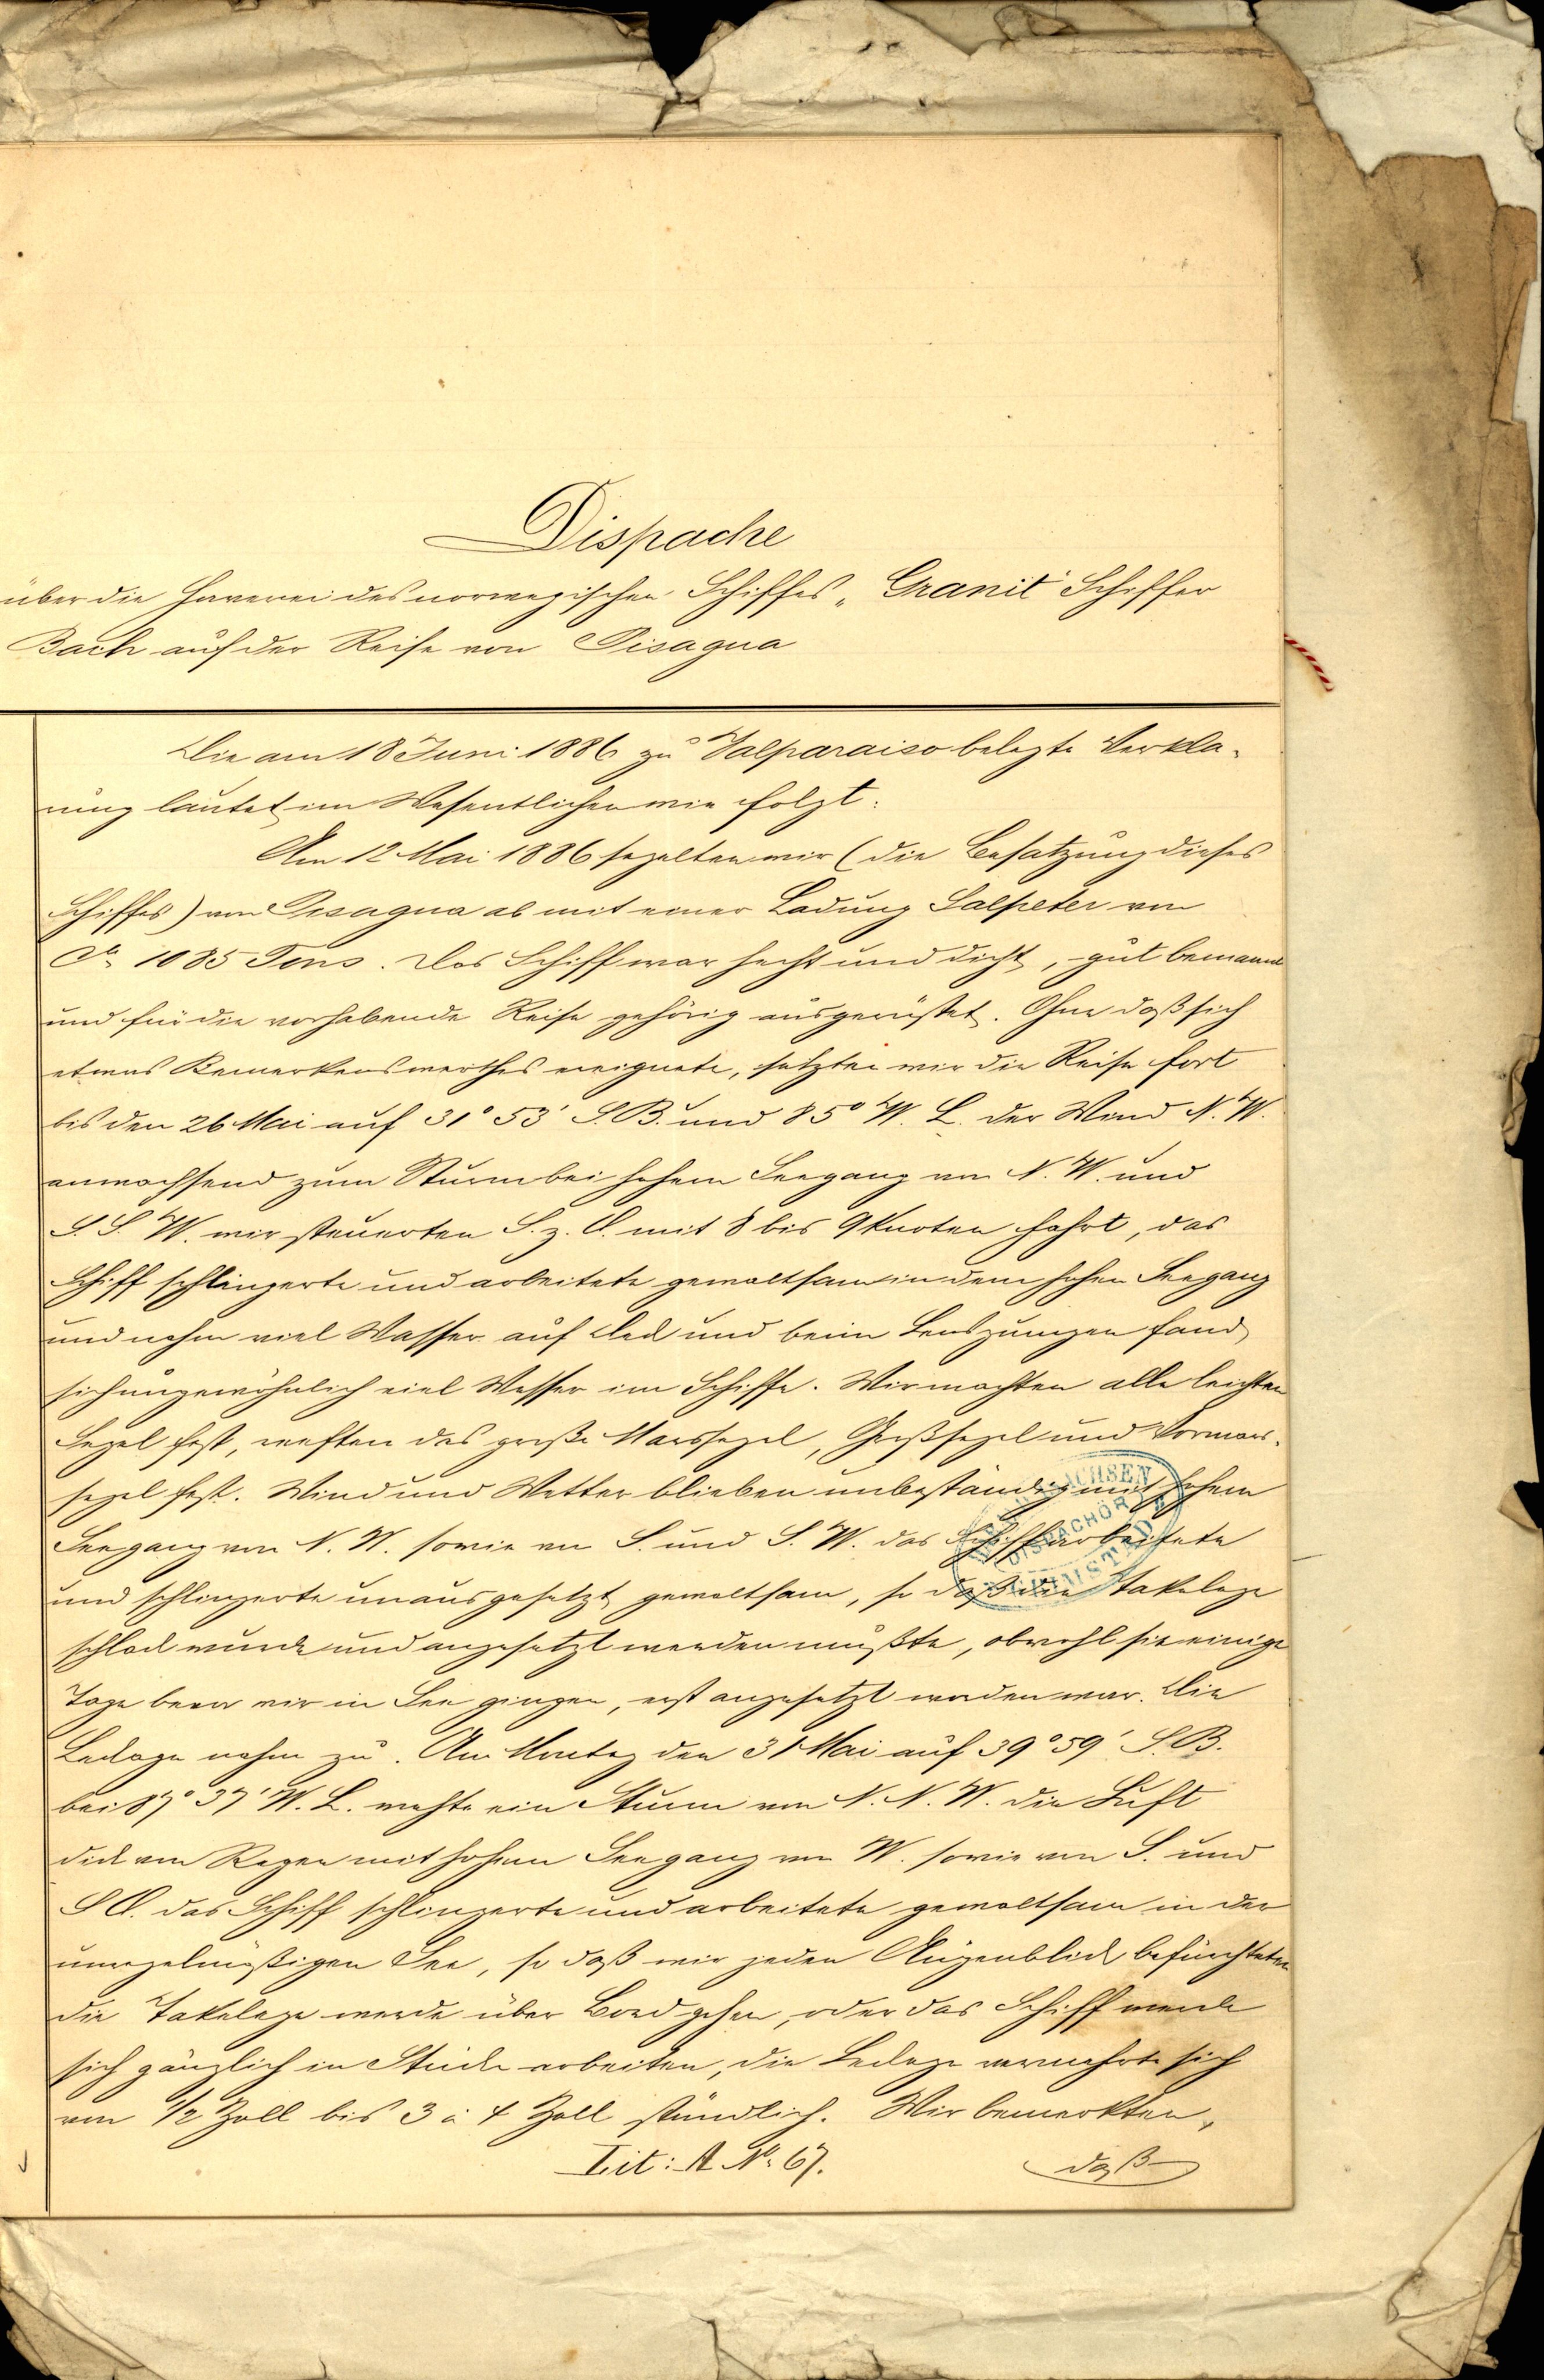 Dispache
über die Haverei des norwegischen Schiffes „Granit" Schiffer
Bach auf der Reise von Pisagua
Die am 18 Juni 1886 zu Valparaiso belegte Verkla-
rung lautet im Wesentlichen wie folgt:
Am 12 Mai 1886 segelten wir (die Besatzung dieses
Schiffes) von Pisagua ab mit einer Ladung Salpeter von
1085 Tons. Das Schiff war hecht und dicht, gut bemannt
und für die vorhabende Reise gehörig ausgerüstet. Ohne daß sich
etwas Bemerkenswerthes ereignete, setzten wir die Reise fort
bis den 26 Mai auf 31° 53' S.B. und 85° W. L. der Wind N. W.
anwachsend zum Sturm bei hohem Seegang von N. W. und
S. S. W. wir steuerten S. z. O. mit 8 bis 9 Knoten Fahrt, das
Schiff schlingerte und arbeitete gewaltsam in dem hohen Seegang
und nahm viel Wasser auf Deck und beim Lenspumpen fand
sich ungewöhnlich viel Wasser im Schiffe. Wir machten alle leichten
Segel fest, reeften das große Marssegel, Großsegel und Vormars-
segel fest. Wind und Wetter blieben unbeständig mit hohem
Seegang von N. W. sowie von S. und S. W. das Schiff arbeitete
und schlingerte unausgesetzt gewaltsam, so daß die Takelage
schlack wurde und angesetzt werden mußte, obwohl sie einige
Tage bevor wir in See gingen, erst angesetzt worden war. Die
Leckage nahm zu. Am Montag den 31 Mai auf 39° 59' S.B.
bei 87° 37' W. L. wehte ein Sturm von N. N. W. die Luft
dick von Regen mit hohem Seegang von W. sowie von S. und
S O. das Schiff schlingerte und arbeitete gewaltsam in der
unregelmäßigen See, so daß wir jeden Augenblick befürchteten
die Takelage werde über Bord gehen, oder das Schiff werde
sich gänzlich in Stücke arbeiten, die Leckage vermehrte sich
von 1/2 Zoll bis 3 à 4 Zoll stündlich. Wir bemerkten,
Lit: A No. 67.
daß
DISPACHÖR
GRIMSTAD